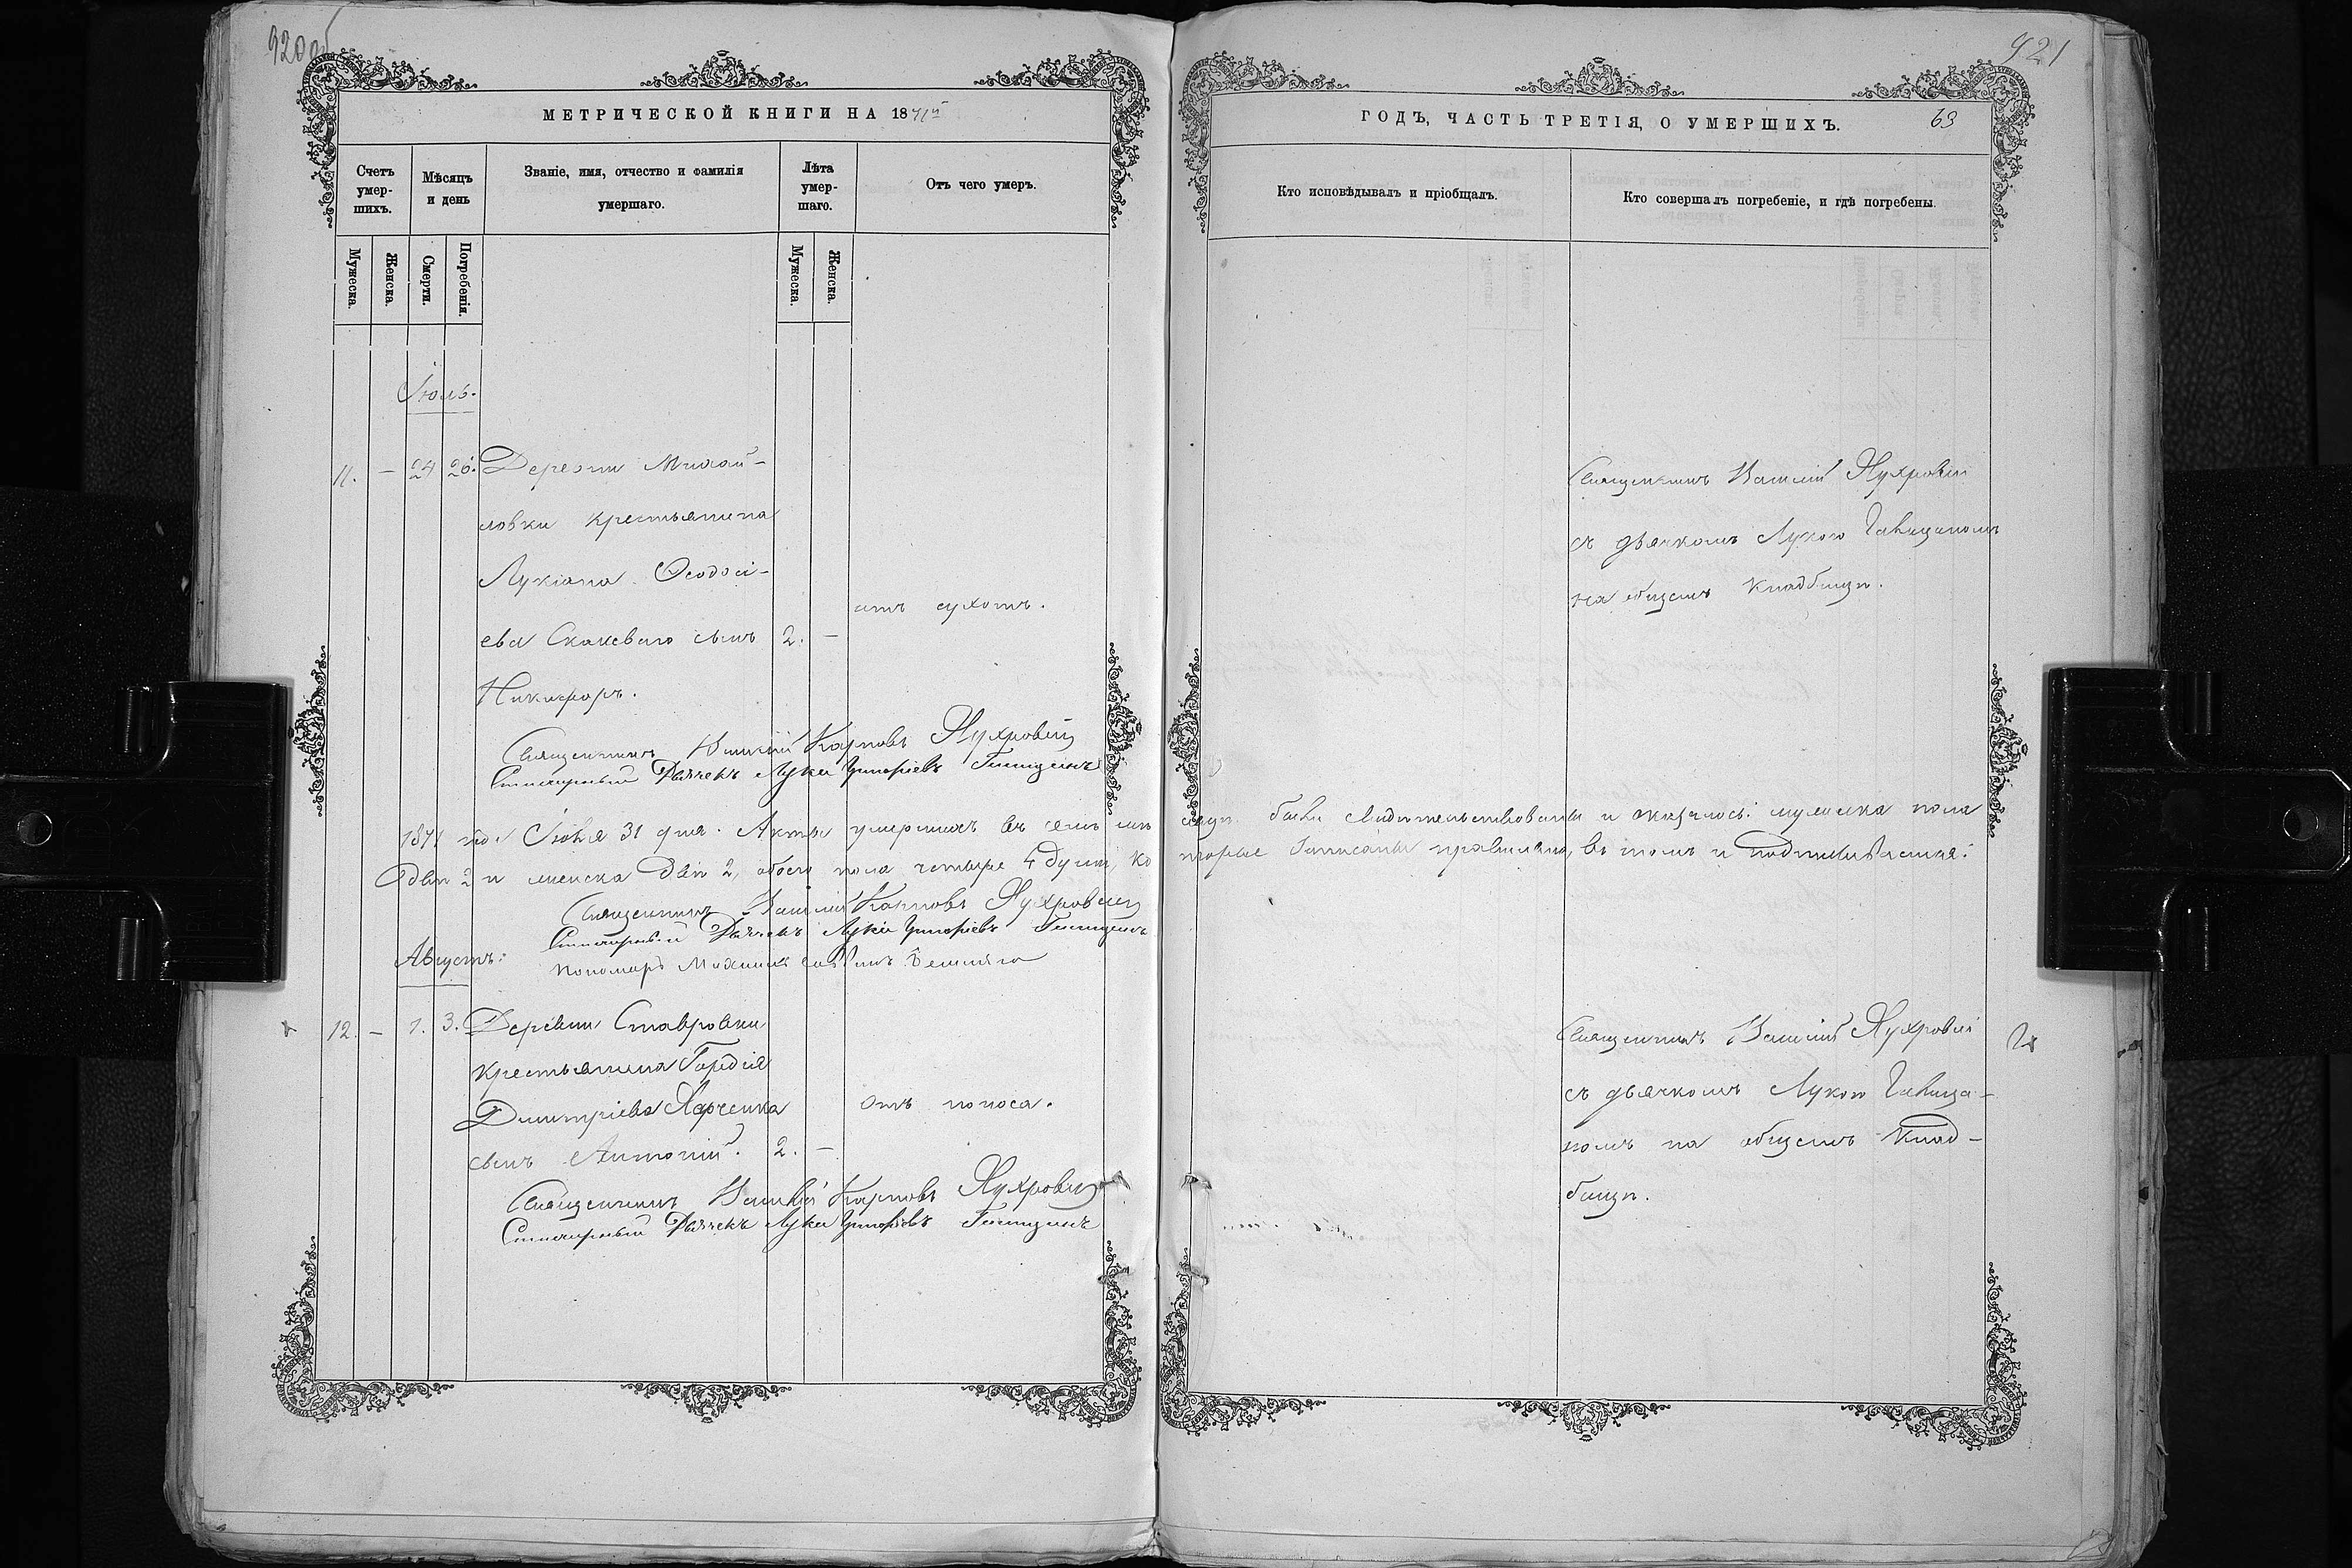 920 об
МЕТРИЧЕСКОЙ КНИГИ НА 1871й
Счетъ умер-шихъ.
Мѣсяцъ и день
Званіе, имя, отчество и фамилія умершаго.
Лѣта умер-шаго.
Отъ чего умеръ.
Мужеска.
Женска.
Смерти.
Погребенія.
Мужеска.
Женска.
Іюль.
11. — 24 26. Деревни Михай-
ловки крестьянина
Лукіана Ѳеодосі-
отъ сухотъ.
ева сынъ 2. —
Никифоръ.
Священникъ Василій Карповъ
Стихарный Дьячекъ Лука Григоріевъ
1871 года Іюля 31 дня. Акты умершихъ въ семъ мѣ
Двѣ 2 и женска Двѣ 2, обоего пола четыре 4 души, ко
Священникъ Василій Карповъ
Стихарный Дьячекъ Лука Григоріевъ
Августъ:
Пономарь Михаилъ
12. — 1. 3. Деревни Ставровки
крестьянина Гордія
Димитріева Харченка
отъ поноса.
сынъ Антоній. 2. —
Священникъ Василій Карповъ
Стихарный Дьячекъ Лука Григоріевъ
921
ГОДЪ, ЧАСТЬ ТРЕТІЯ, О УМЕРШИХЪ.
63
Кто исповѣдывалъ и пріобщалъ.
Кто совершалъ погребеніе, и гдѣ погребены.
Священникъ Василій
съ дьячкомъ Лукою
на общемъ кладбищѣ.
сяцѣ были свидѣтельствованы и оказалось: мужеска пола
торые записаны правильно, въ томъ и подписываемся:
Священникъ Василій
съ дьячкомъ Лукою
номъ на общемъ клад-
бищѣ.